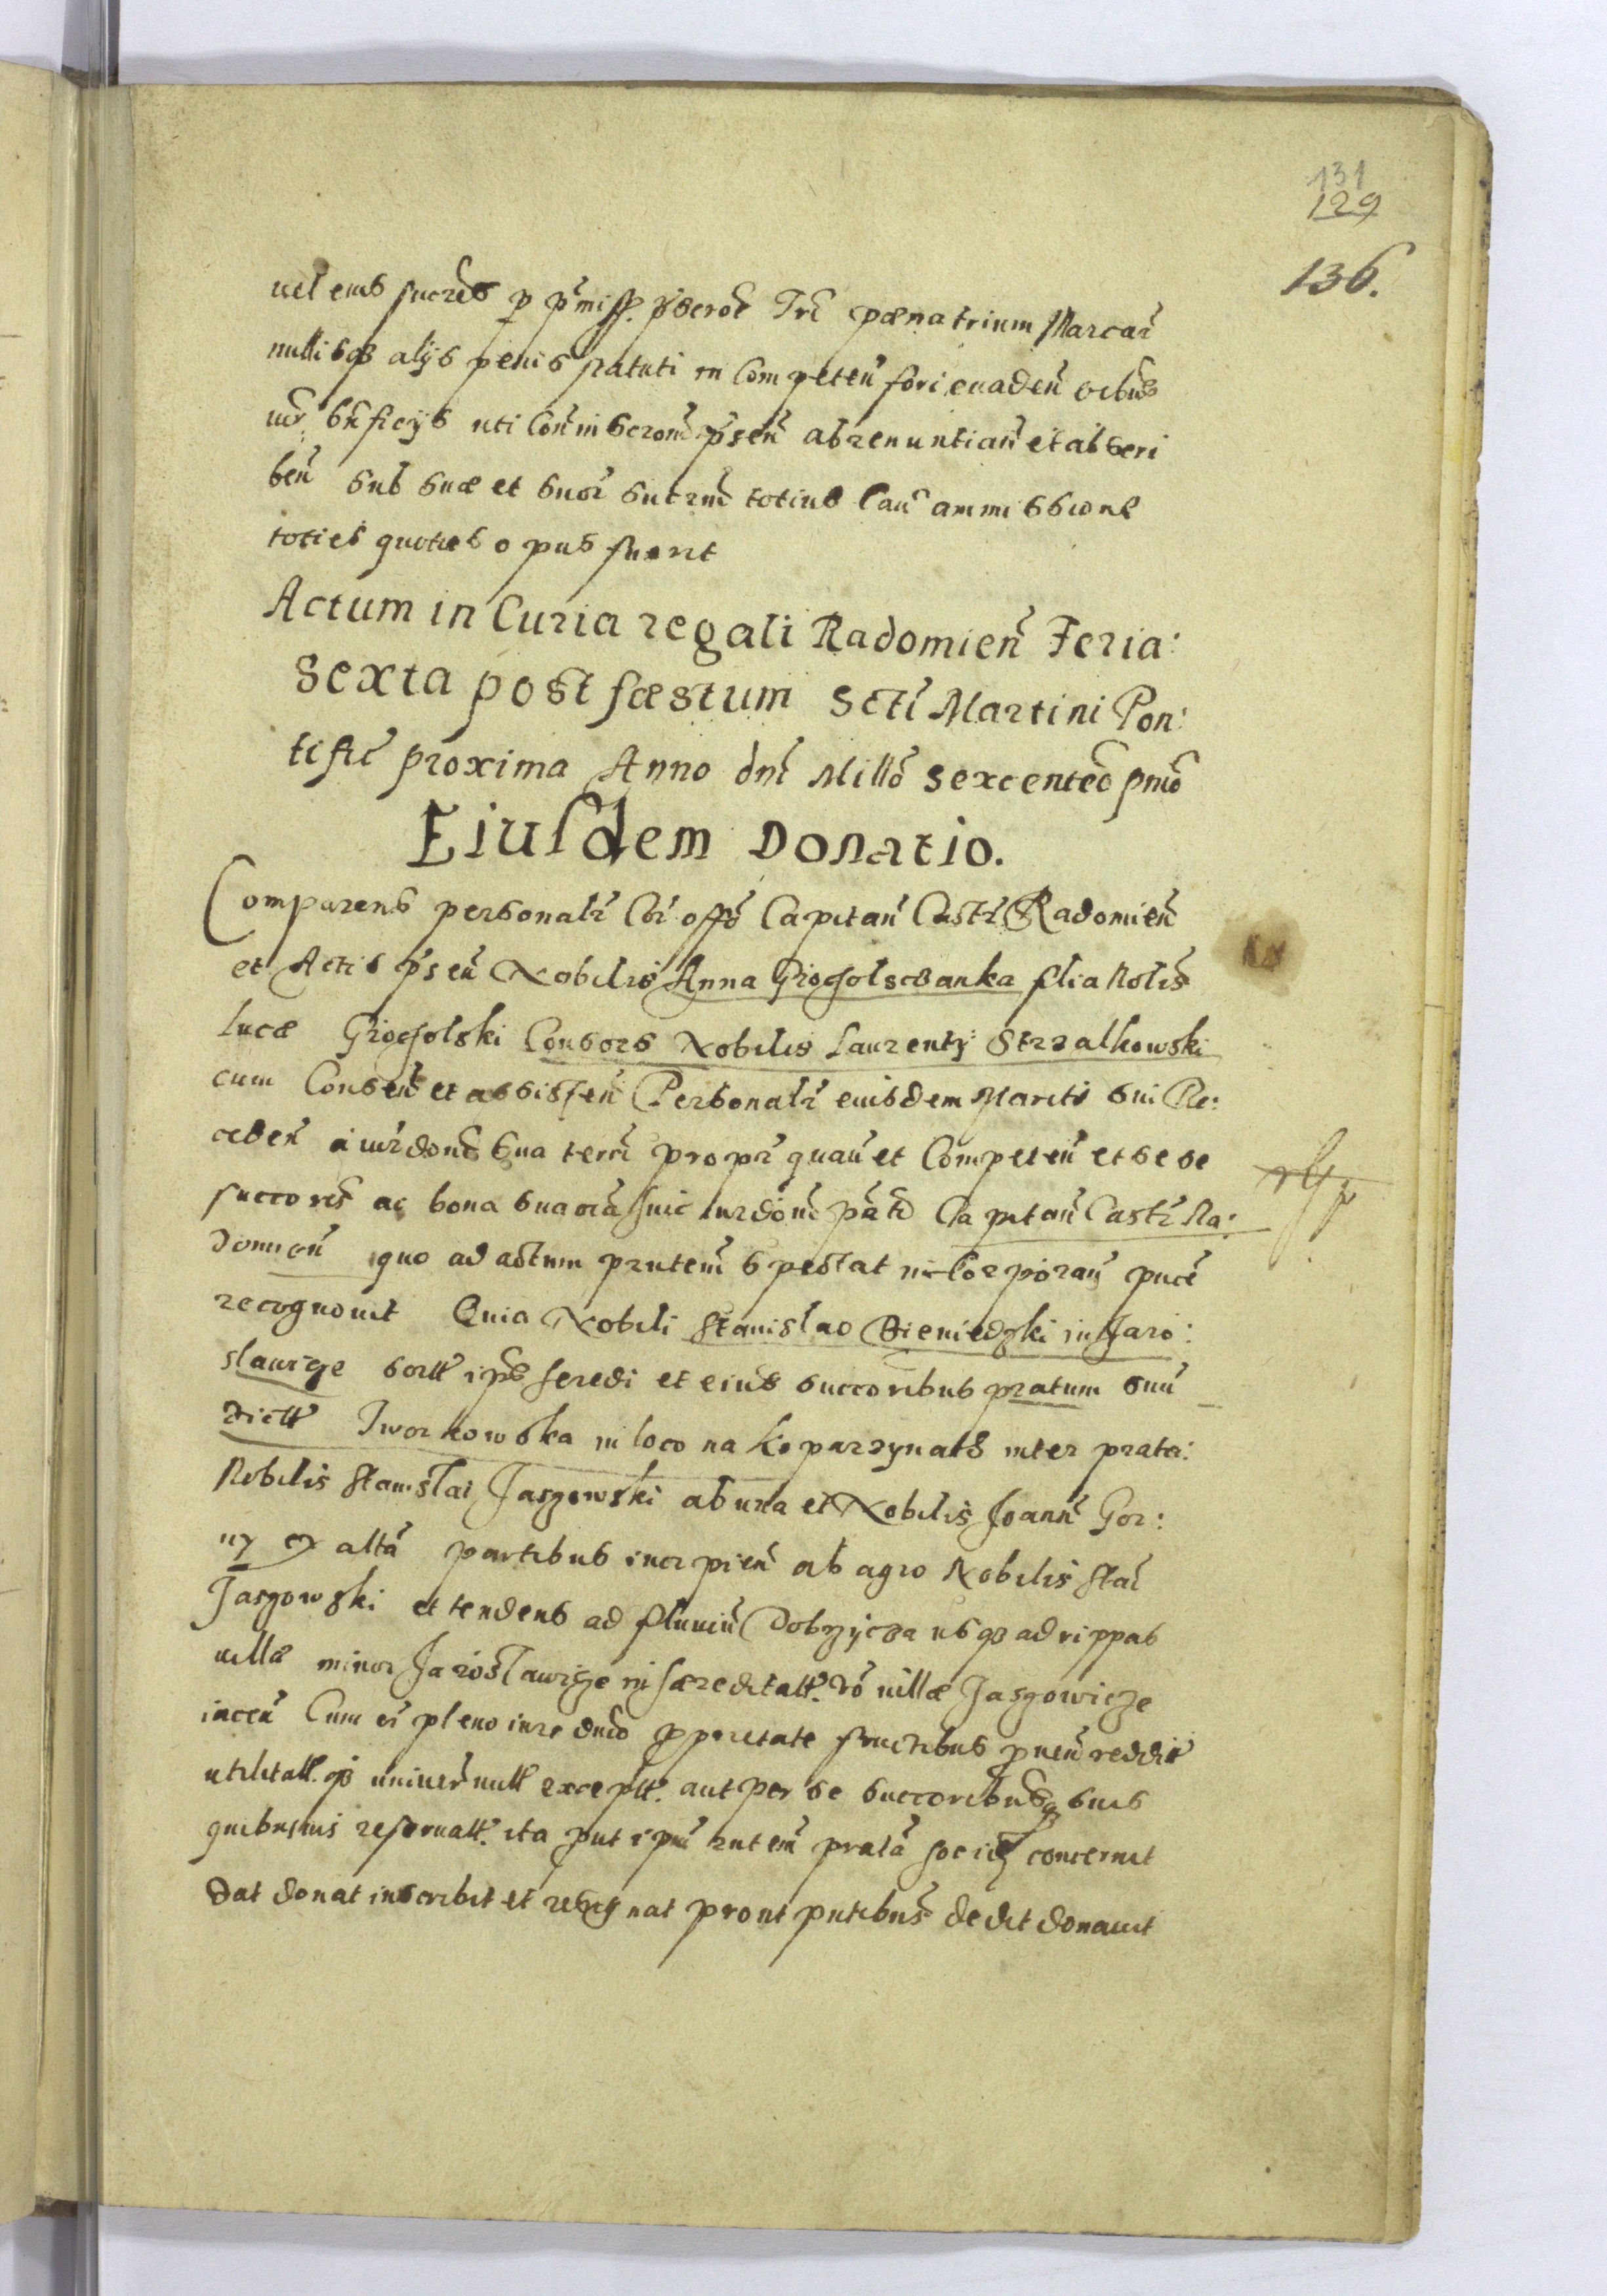 131
129
136.
vel eius succes p pmiss. pdcroe Tri pœna trium Marcar
nullisqз alijs penis statuti in Competen fori evaden oibus
iur bnficijs uti Con inscrone psen abrenuntian et abscri
ben sub suæ et suor succrum totius Cau ammissione
toties quoties opus fuerit
Actum in Curia regali Radomien Feria:
Sexta post fæstum Scti Martini Pon:
tific proxima Anno dni Millo Sexcenteo pmo
Eiusdem Donatio.
Comparens personalr Cor offo Capitan Castr Radomien
et Actis psen Nobilis Anna Grocholsczanka filia Nolis
Lucæ Grocholski Consors Nobilis Laurentij Strzalkowski
cum Consen et assisten Personalr eiusdem Mariti sui Re:
ceden a iurdone sua terr propr quan et Competen et se se
succores ac bona sua oia huic iurdoni pnti Capitan Castr Ra:
domien quo ad actum pntem spectat incorporan pnce
recognouit Quia Nobili Stanislao Bieniedzki in Jaro:
slawicze sortt ipse heredi et eius succoribus pratum suu
dictt Tworkowska in loco na Koparzynach inter prata:
Nobilis Stanislai Jasgowski ab una et Nobilis Joann Gor:
ny ex altā partibus incipien ab agro Nobilis Stai
Jasgowski et tendens ad fluuiu Dobrzycza usqз ad rippas
uillæ minor Jaroslawicze in hæreditatt. uo uillæ Jasgowicze
iacen Cum oi pleno iure dnio pprietate fructibus puen reddit
utilitatt. qз uniuer null exceptt. aut per se succoribusqз suis
quibusuis reseruatt. ita put ipm antem pratu hoc concernit
dat donat inscribit et resignat prout pntibus dedit donauit